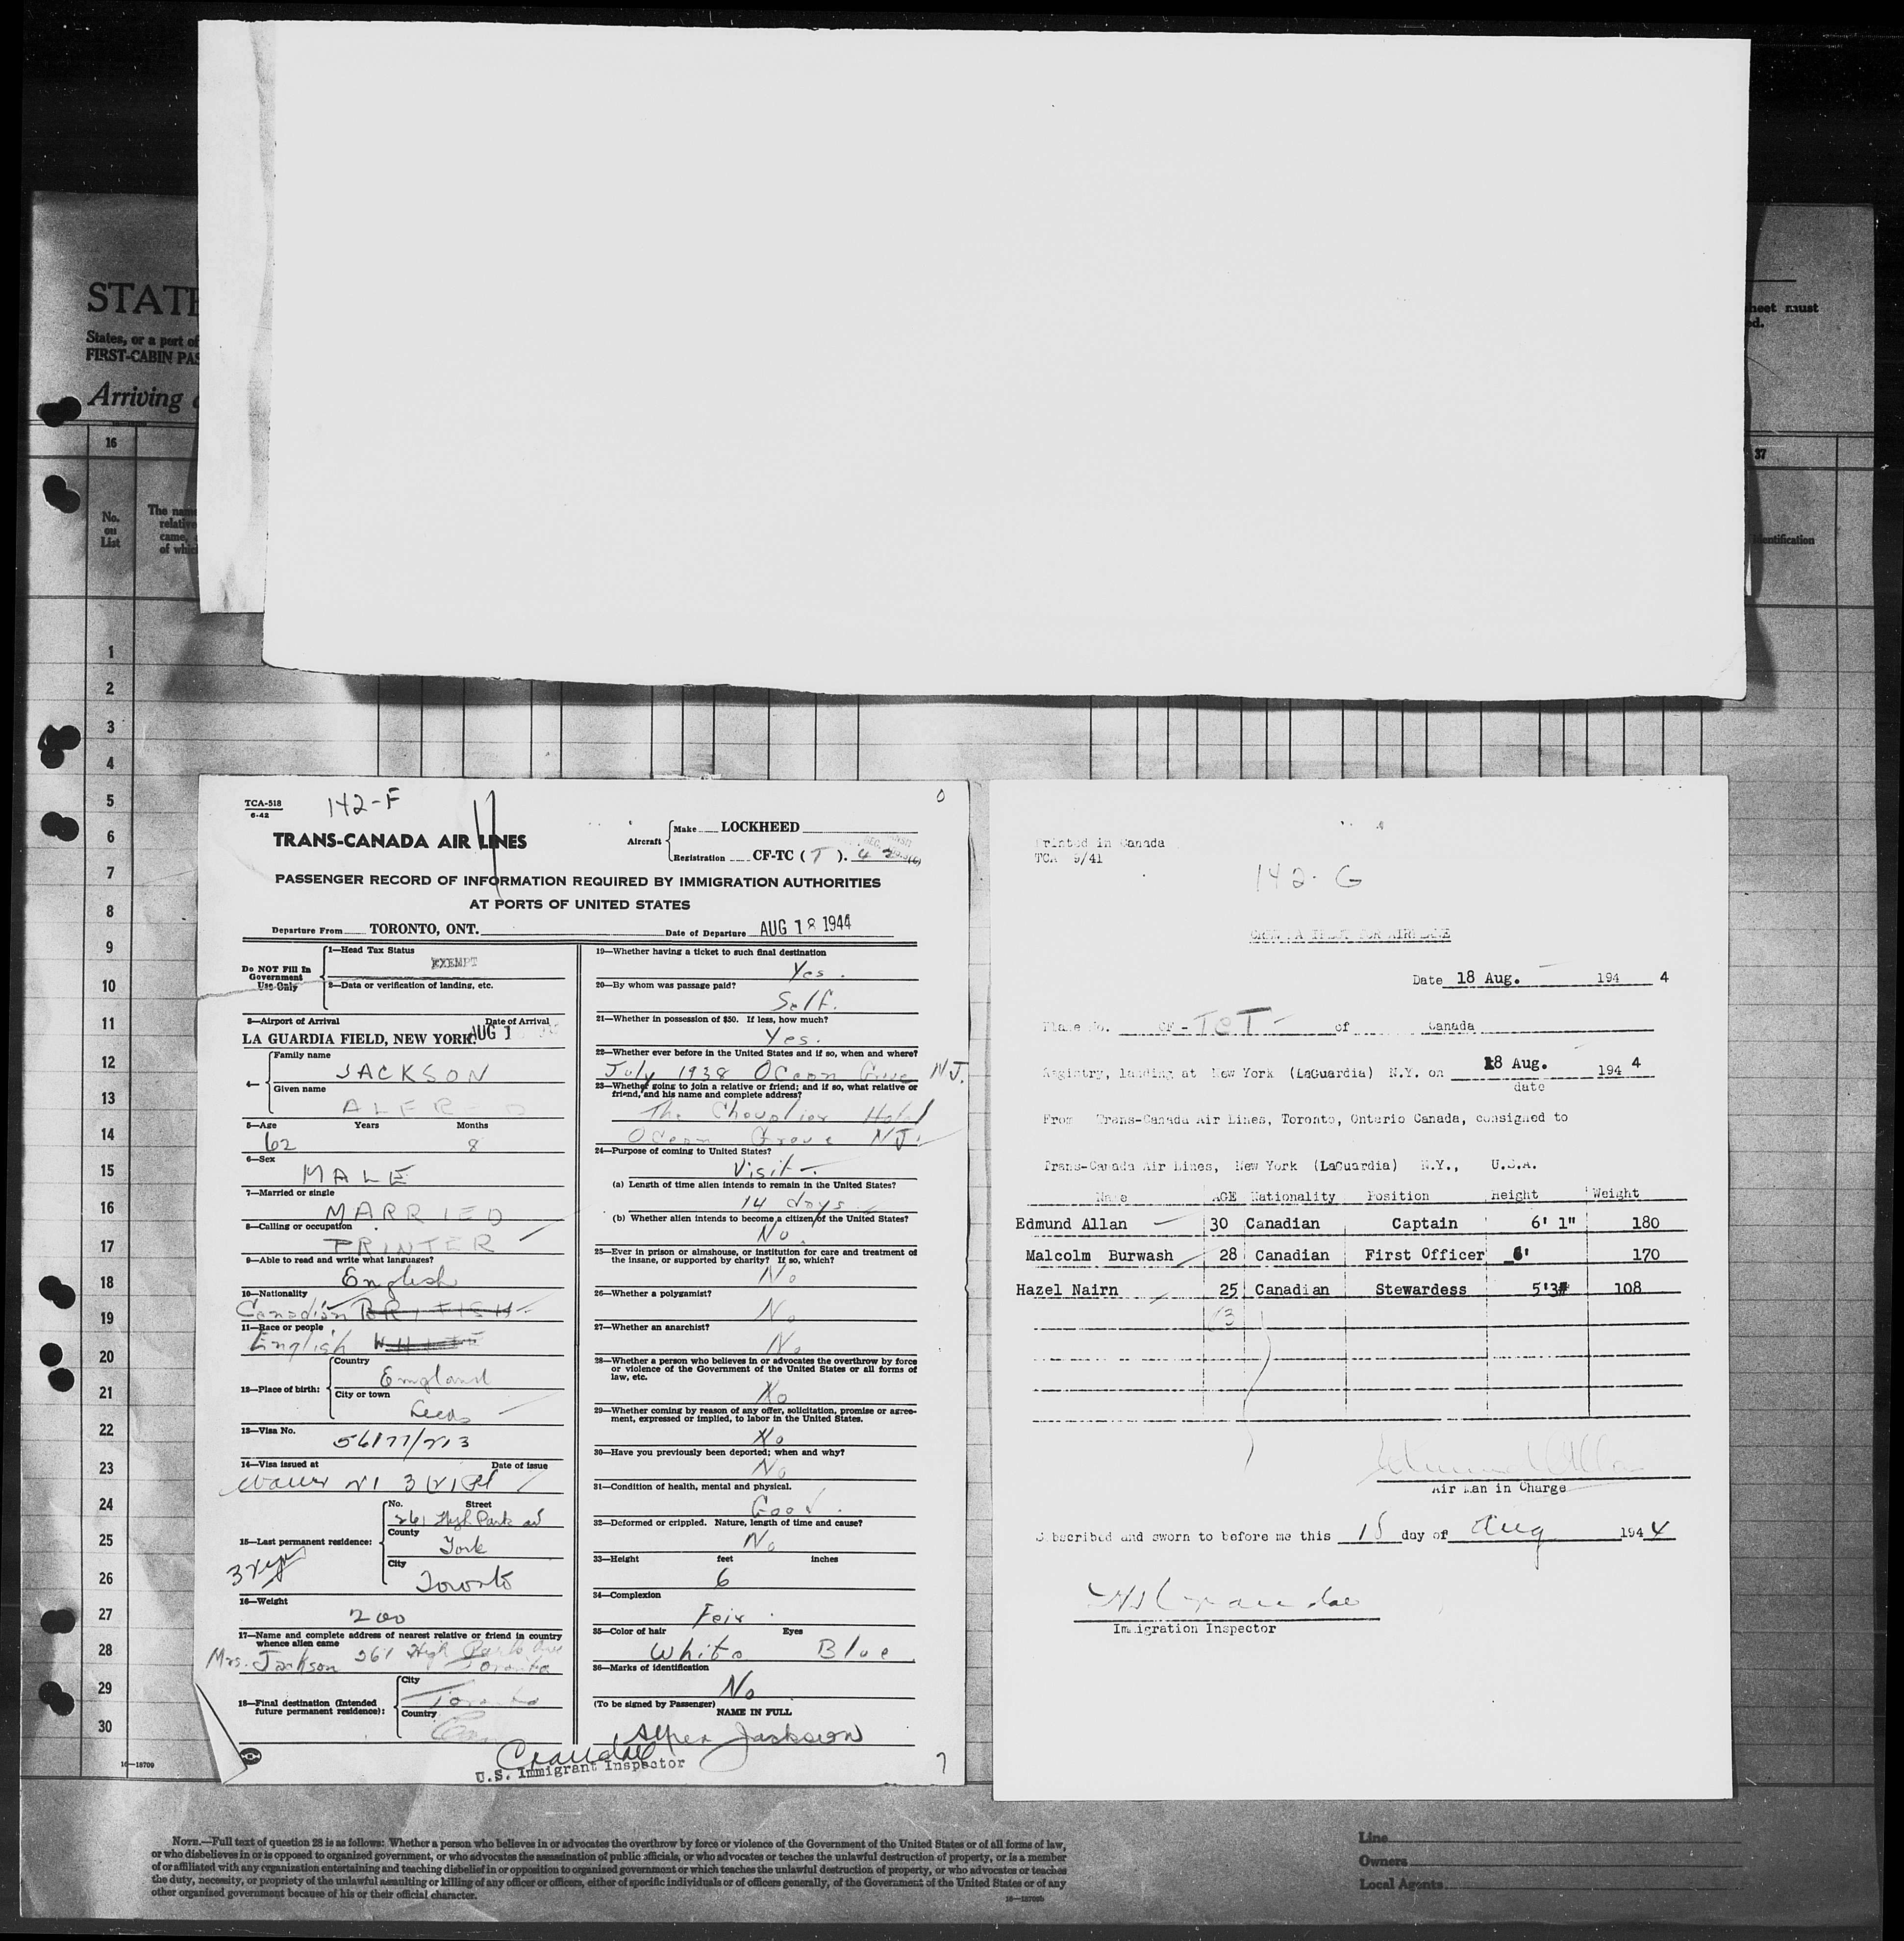 STATE
States, or a port of
FIRST-CABIN PAS
Arriving
16
No.
on
List
The name
relative
came,
of which
heet must
ed.
37
Identification
1
2
3
4
5
6
7
8
9
10
11
12
13
14
15
16
17
18
19
20
21
22
23
24
25
26
27
28
29
30
16—18709
TCA-518
6-42
142-F
0
TRANS-CANADA AIR LINES
Aircraft
Make LOCKHEED
Registration CF-TC ( T ).
PASSENGER RECORD OF INFORMATION REQUIRED BY IMMIGRATION AUTHORITIES
AT PORTS OF UNITED STATES
Departure From TORONTO, ONT. Date of Departure AUG 18 1944
Do NOT Fill In
Government
Use Only
1—Head Tax Status
EXEMPT
2—Data or verification of landing, etc.
3—Airport of Arrival Date of Arrival
LA GUARDIA FIELD, NEW YORK. AUG 1
4—
Family name
JACKSON
Given name
ALFRED
5—Age Years Months
62 8
6—Sex
MALE
7—Married or single
MARRIED
8—Calling or occupation
PRINTER
9—Able to read and write what languages?
English
10—Nationality
Canadian BRITISH
11—Race or people
English
12—Place of birth:
Country
England
City or town
Leeds
13—Visa No.
14—Visa issued at Date of issue
15—Last permanent residence:
No. Street
261 High Park av
County
York
City
Toronto
16—Weight
200
17—Name and complete address of nearest relative or friend in country
whence alien came
Mrs. Jackson 261 High Park Ave
Toronto
18—Final destination (Intended
future permanent residence):
City
Toronto
Country
Can
19—Whether having a ticket to such final destination
Yes.
20—By whom was passage paid?
Self.
21—Whether in possession of $50. If less, how much?
Yes.
22—Whether ever before in the United States and if so, when and where?
July 1938 Ocean Grove N.J.
23—Whether going to join a relative or friend; and if so, what relative or
friend, and his name and complete address?
The Chevalier Hotel
Ocean Grove N.J.
24—Purpose of coming to United States?
Visit
(a) Length of time alien intends to remain in the United States?
14 days
(b) Whether alien intends to become a citizen of the United States?
No.
25—Ever in prison or almshouse, or institution for care and treatment of
the insane, or supported by charity? If so, which?
No
26—Whether a polygamist?
No
27—Whether an anarchist?
No
28—Whether a person who believes in or advocates the overthrow by force
or violence of the Government of the United States or all forms of
law, etc.
No
29—Whether coming by reason of any offer, solicitation, promise or agree-
ment, expressed or implied, to labor in the United States.
No
30—Have you previously been deported; when and why?
No
31—Condition of health, mental and physical.
Good.
32—Deformed or crippled. Nature, length of time and cause?
No
33—Height feet inches
6
34—Complexion
Fair.
35—Color of hair Eyes
White Blue
36—Marks of identification
No
(To be signed by Passenger)
NAME IN FULL
Alfred Jackson
Crandall
U.S. Immigrant Inspector
7
Printed in Canada
TCA 9/41
142-G
CREW MANIFEST FOR AIRPLANE
Date 18 Aug. 194 4
Plane No. CF-TCT- of Canada
Registry, landing at New York (LaGuardia) N.Y. on 18 Aug. 194 4
date
From Trans-Canada Air Lines, Toronto, Ontario Canada, consigned to
Trans-Canada Air Lines, New York (LaGuardia) N.Y., U.S.A.
Name AGE Nationality Position Height Weight
Edmund Allan 30 Canadian Captain 6' 1" 180
Malcolm Burwash 28 Canadian First Officer 6' 170
Hazel Nairn 25 Canadian Stewardess 5'3" 108
(3)
Edmund Allan
Air Man in Charge
Subscribed and sworn to before me this 18 day of Aug 194 4
Immigration Inspector
NOTE.—Full text of question 28 is as follows: Whether a person who believes in or advocates the overthrow by force or violence of the Government of the United States or of all forms of law,
or who disbelieves in or is opposed to organized government, or who advocates the assassination of public officials, or who advocates or teaches the unlawful destruction of property, or is a member
of or affiliated with any organization entertaining and teaching disbelief in or opposition to organized government or which teaches the unlawful destruction of property, or who advocates or teaches
the duty, necessity, or propriety of the unlawful assaulting or killing of any officer or officers, either of specific individuals or of officers generally, of the Government of the United States or of any
other organized government because of his or their official character.
Line
Owners
Local Agents